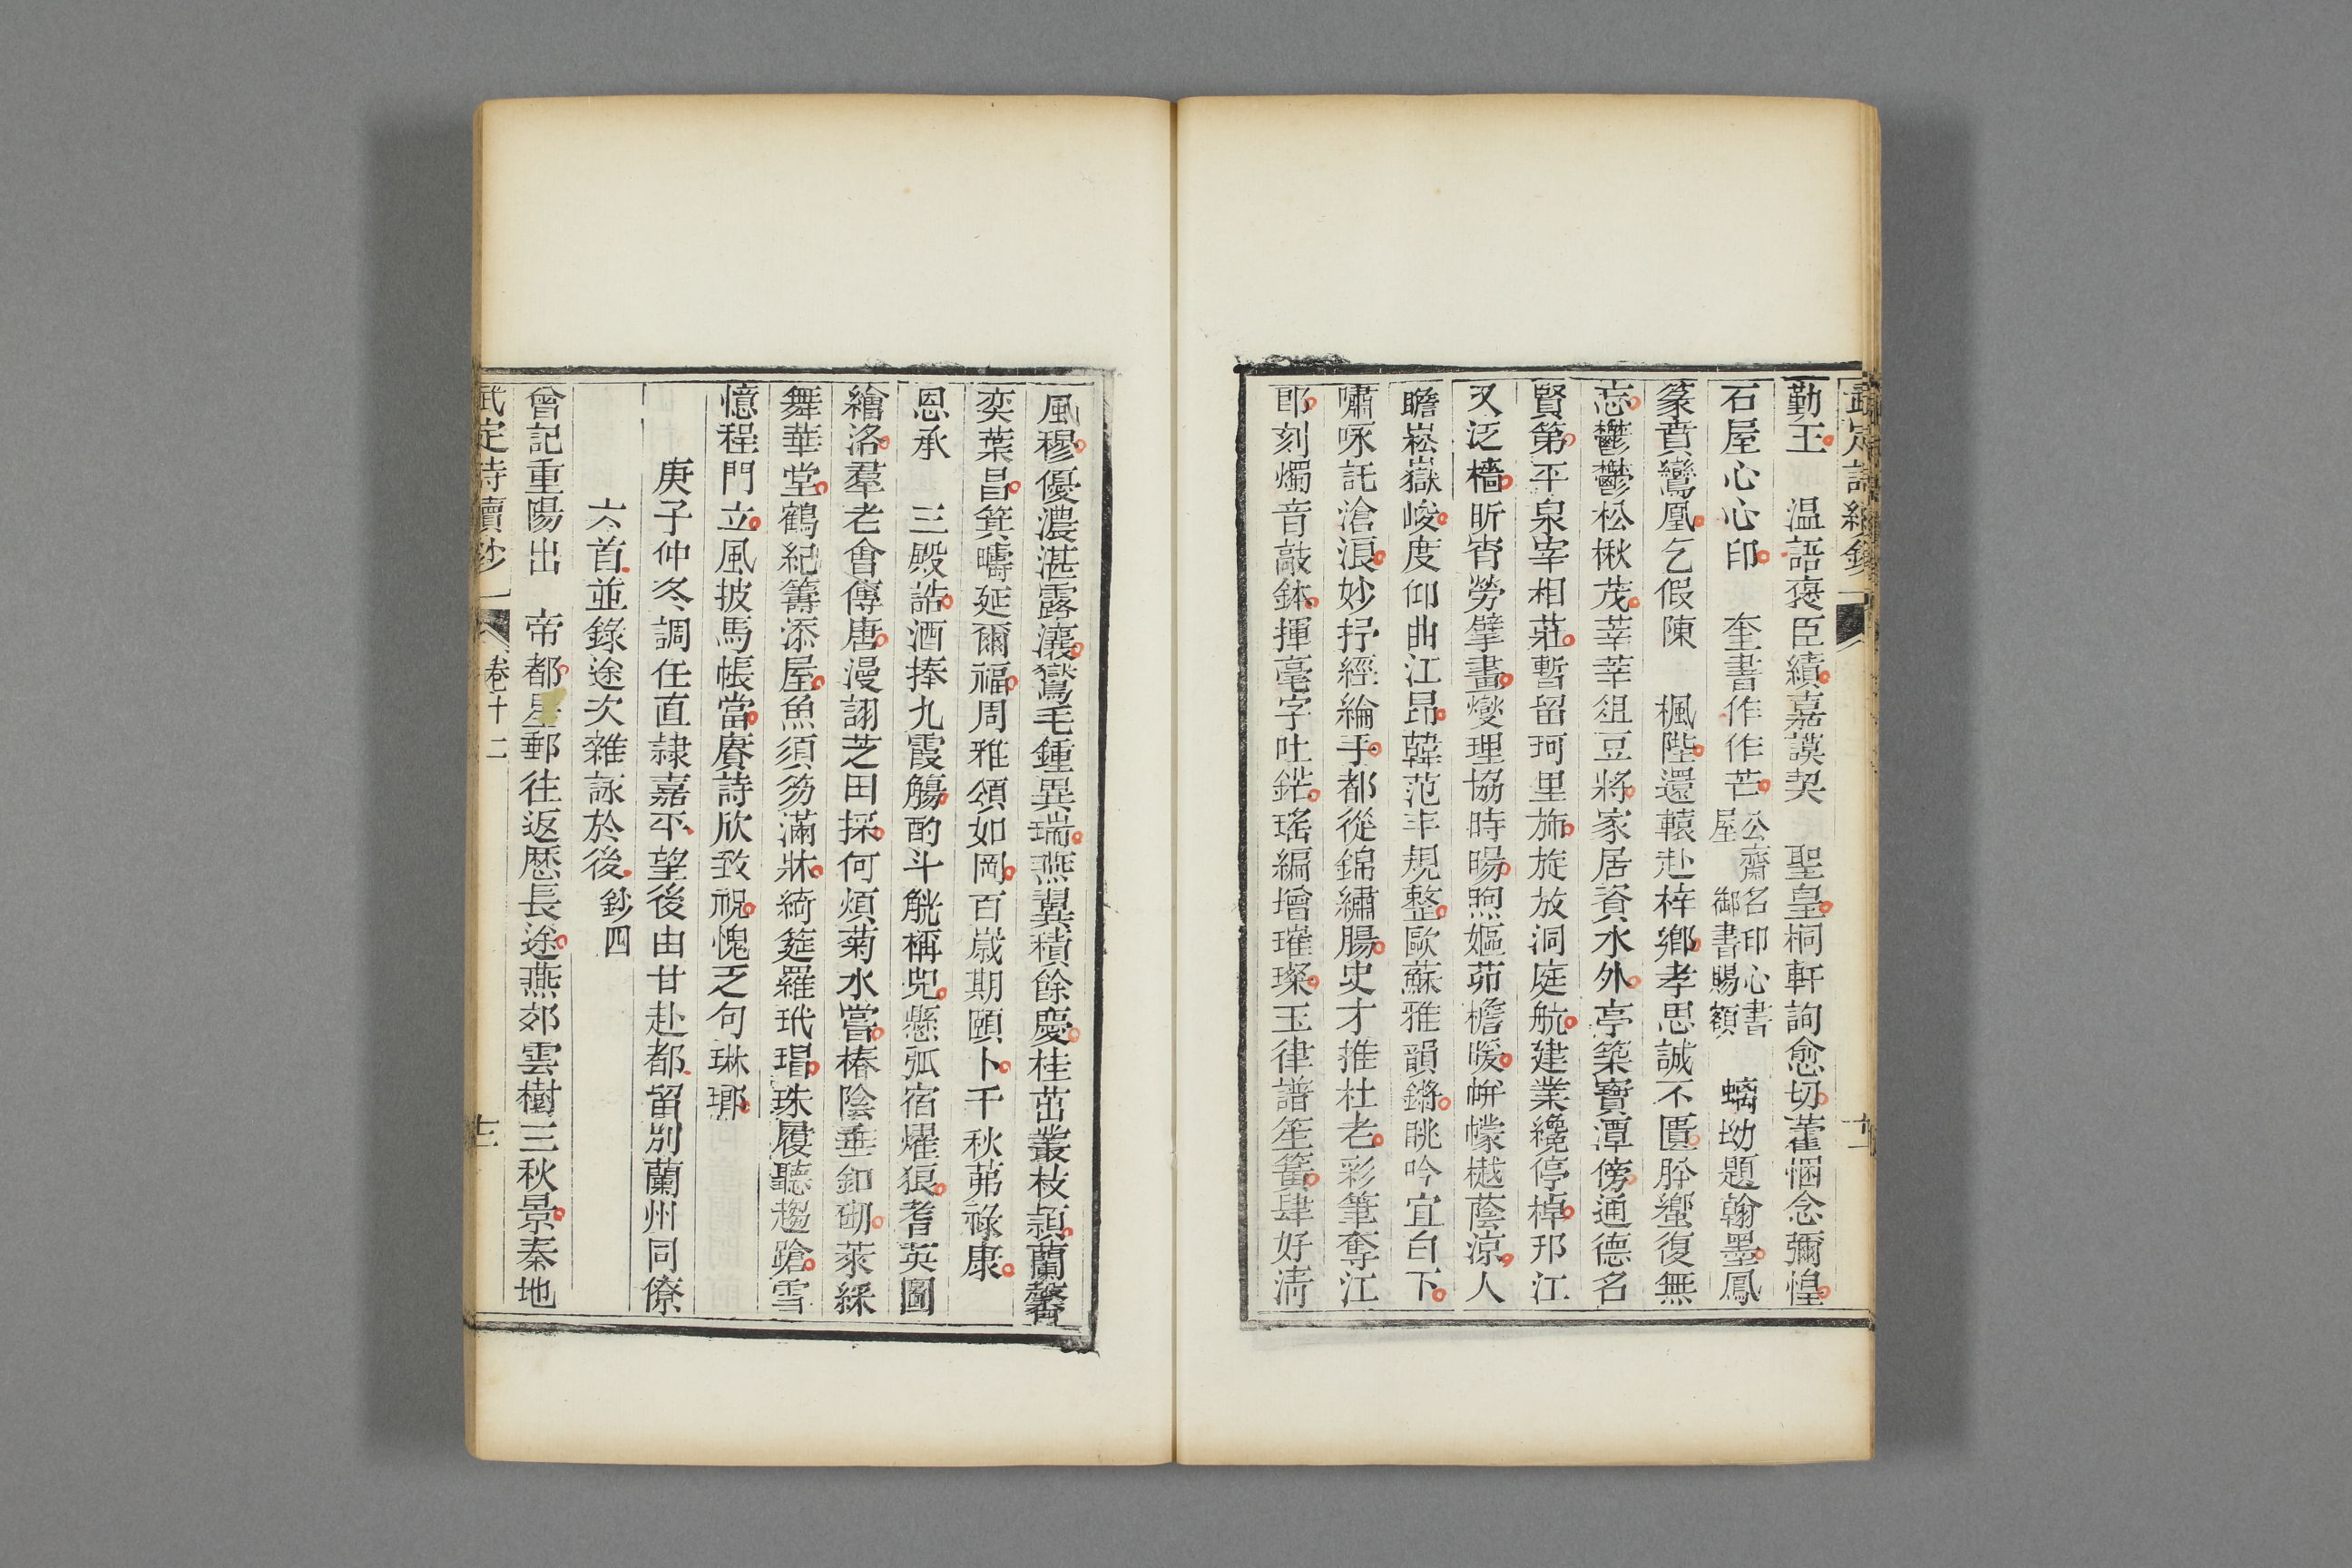 武定詩續鈔
勤王 温語褒臣績嘉謨契 聖皇桐軒詢愈切藿悃念彌惶
石屋心心印 奎書作作芒公齋名印心書屋御書賜額 螭坳題翰墨鳳
篆賁鸞凰乞假陳 楓陛還轅赴梓鄉孝思誠不匱肸蠁復無
忘鬱鬱松楸茂莘莘俎豆將家居資水外亭築寶潭傍通德名
賢第平泉宰相莊暫留珂里斾旋放洞庭航建業纔停棹邗江
又泛檣昕宵勞擘畫燮理協時暘煦嫗茆檐暖帡幪樾蔭涼人
瞻崧嶽峻度仰曲江昂韓范丰規整歐蘇雅韻鏘眺吟宜白下
嘯咏託滄浪妙抒經綸手都從錦繡腸史才推杜老彩筆奪江
郎刻燭音敲鉢揮毫字吐鋩瑤編增璀璨玉律譜笙簧肆好淸
風穆優濃湛露瀼鸑毛鍾異瑞燕翼積餘慶桂茁叢枝頴蘭馨
奕葉昌箕疇延爾福周雅頌如岡百歲期頤卜千秋茀祿康
恩承 三殿誥酒捧九霞觴酌斗觥稱兕懸弧宿燿狼耆英圖
繪洛羣老會傳唐漫詡芝田採何煩菊水嘗椿陰垂釦砌萊綵
舞華堂鶴紀籌添屋魚須笏滿牀綺筵羅玳瑁珠履聽趨蹌雪
憶程門立風披馬帳當賡詩欣致祝愧乏句琳瑯
庚子仲冬調任直隸嘉平望後由甘赴都留別蘭州同僚
六首並錄途次雜詠於後鈔四
曾記重陽出 帝都星郵往返歷長途燕郊雲樹三秋景秦地
武定詩續鈔 卷十二 十三